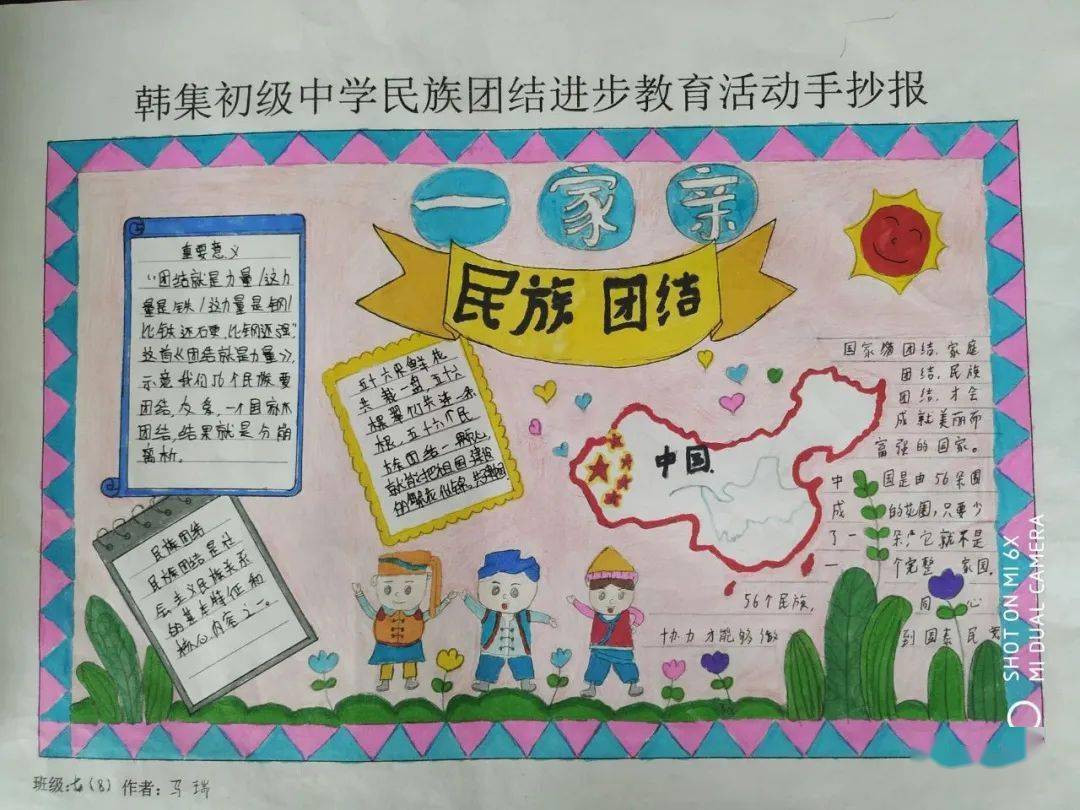 韩集初级中学民族团结进步教育活动手抄报
一家亲
民族团结
重要意义
“团结就是力量/这力
量是铁/这力量是钢/
比铁还硬,比钢还强”
这首《团结就是力量》,
示意我们56个民族要
团结,友爱,一个国家不
团结,结果就是分崩
离析。
五十六朵鲜花
共栽一盘,五十六
棵翠竹共连一条
根,五十六个民
族团结一颗心,
就能把祖国建设
的繁花似锦。
民族团结
民族团结是社
会主义民族关系
的基本特征和
核心内容之一。
中国.
国家猪团结,家庭
团结,民族
团结,才会
成就美丽而
富强的国家。
中国是由56朵围
成的花圃,只要少
了一朵,它就不是
一个完整家园。
56个民族,同心
协力才能够做到国泰民
班级:七(8) 作者:马瑞
SHOT ON MI 6X
MI DUAL CAMERA